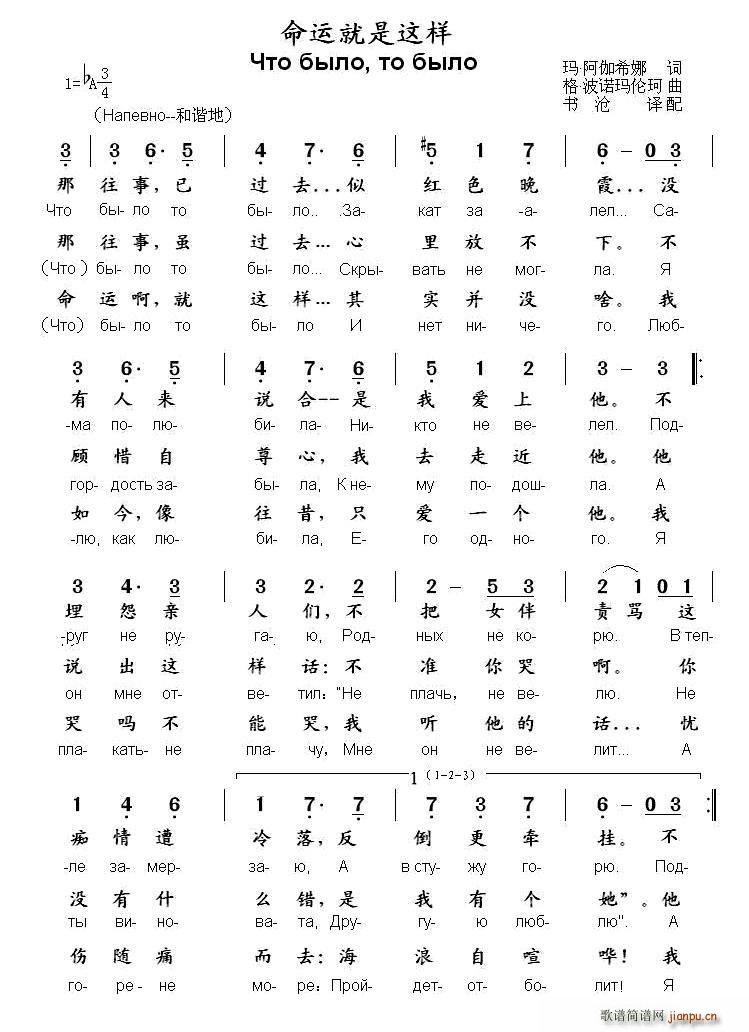 命运就是这样
Что было, то было
1=♭A 3/4
玛·阿伽希娜 词
格·波诺玛伦珂 曲
书沧 译配
（Напевно--和谐地）
3 | 3 6· 5 | 4 7· 6 | #5 1 7 | 6 – 0 3 |
那 往 事, 已 过 去... 似 红 色 晚 霞... 没
Что бы- ло то бы- ло.. .За- кат за -а- лел... Са-
那 往 事, 虽 过 去... 心 里 放 不 下。 不
(Что) бы- ло то бы- ло... Скры- вать не мог- ла. Я
命 运 啊, 就 这 样... 其 实 并 没 啥。 我
(Что) бы- ло то бы- ло И нет ни- че- го. Люб-
3 6· 5 | 4 7· 6 | 5 1 2 | 3 – 3 ‖:
有 人 来 说 合-- 是 我 爱 上 他。 不
-ма по- лю- би- ла- Ни- кто не ве- лел. Под-
顾 惜 自 尊 心, 我 去 走 近 他。 他
гор- дость за- бы- ла, К не- му по- дош- ла. А
如 今, 像 往 昔, 只 爱 一 个 他。 我
-лю, как лю- би- ла, Е- го од- но- го. Я
3 4· 3 | 3 2· 2 | 2 – 5 3 | 2 1 0 1 |
埋 怨 亲 人 们, 不 把 女 伴 责 骂 这
-руг не ру- га- ю, Род- ных не ко- рю. В теп-
说 出 这 样 话: 不 准 你 哭 啊。 你
он мне от- ве- тил: "Не плачь, не ве- лю. Не
哭 吗 不 能 哭, 我 听 他 的 话... 忧
пла- кать- не пла- чу, Мне он не ве- лит... А
1 (1-2-3)
1 4 6 | 1 7· 7 | 7 3 7 | 6 – 0 3 :‖
痴 情 遭 冷 落, 反 倒 更 牵 挂。 不
-ле за- мер- за- ю, А в сту- жу го- рю. Под-
没 有 什 么 错, 是 我 有 个 她”。 他
ты ви- но- ва- та, Дру- гу- ю люб- лю". А
伤 随 痛 而 去: 海 浪 自 喧 哗! 我
го- ре- не мо- ре: Прой- дет- от- бо- лит! Я
歌谱简谱网
jianpu.cn